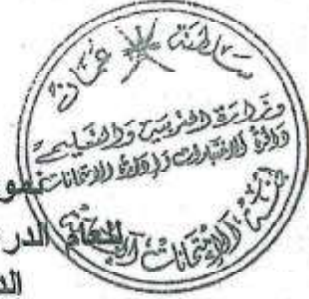 سلطنة عمان
وزارة التربية والتعليم
دائرة الاختبارات وإدارة الامتحانات
نمو
للعام الدر
الد